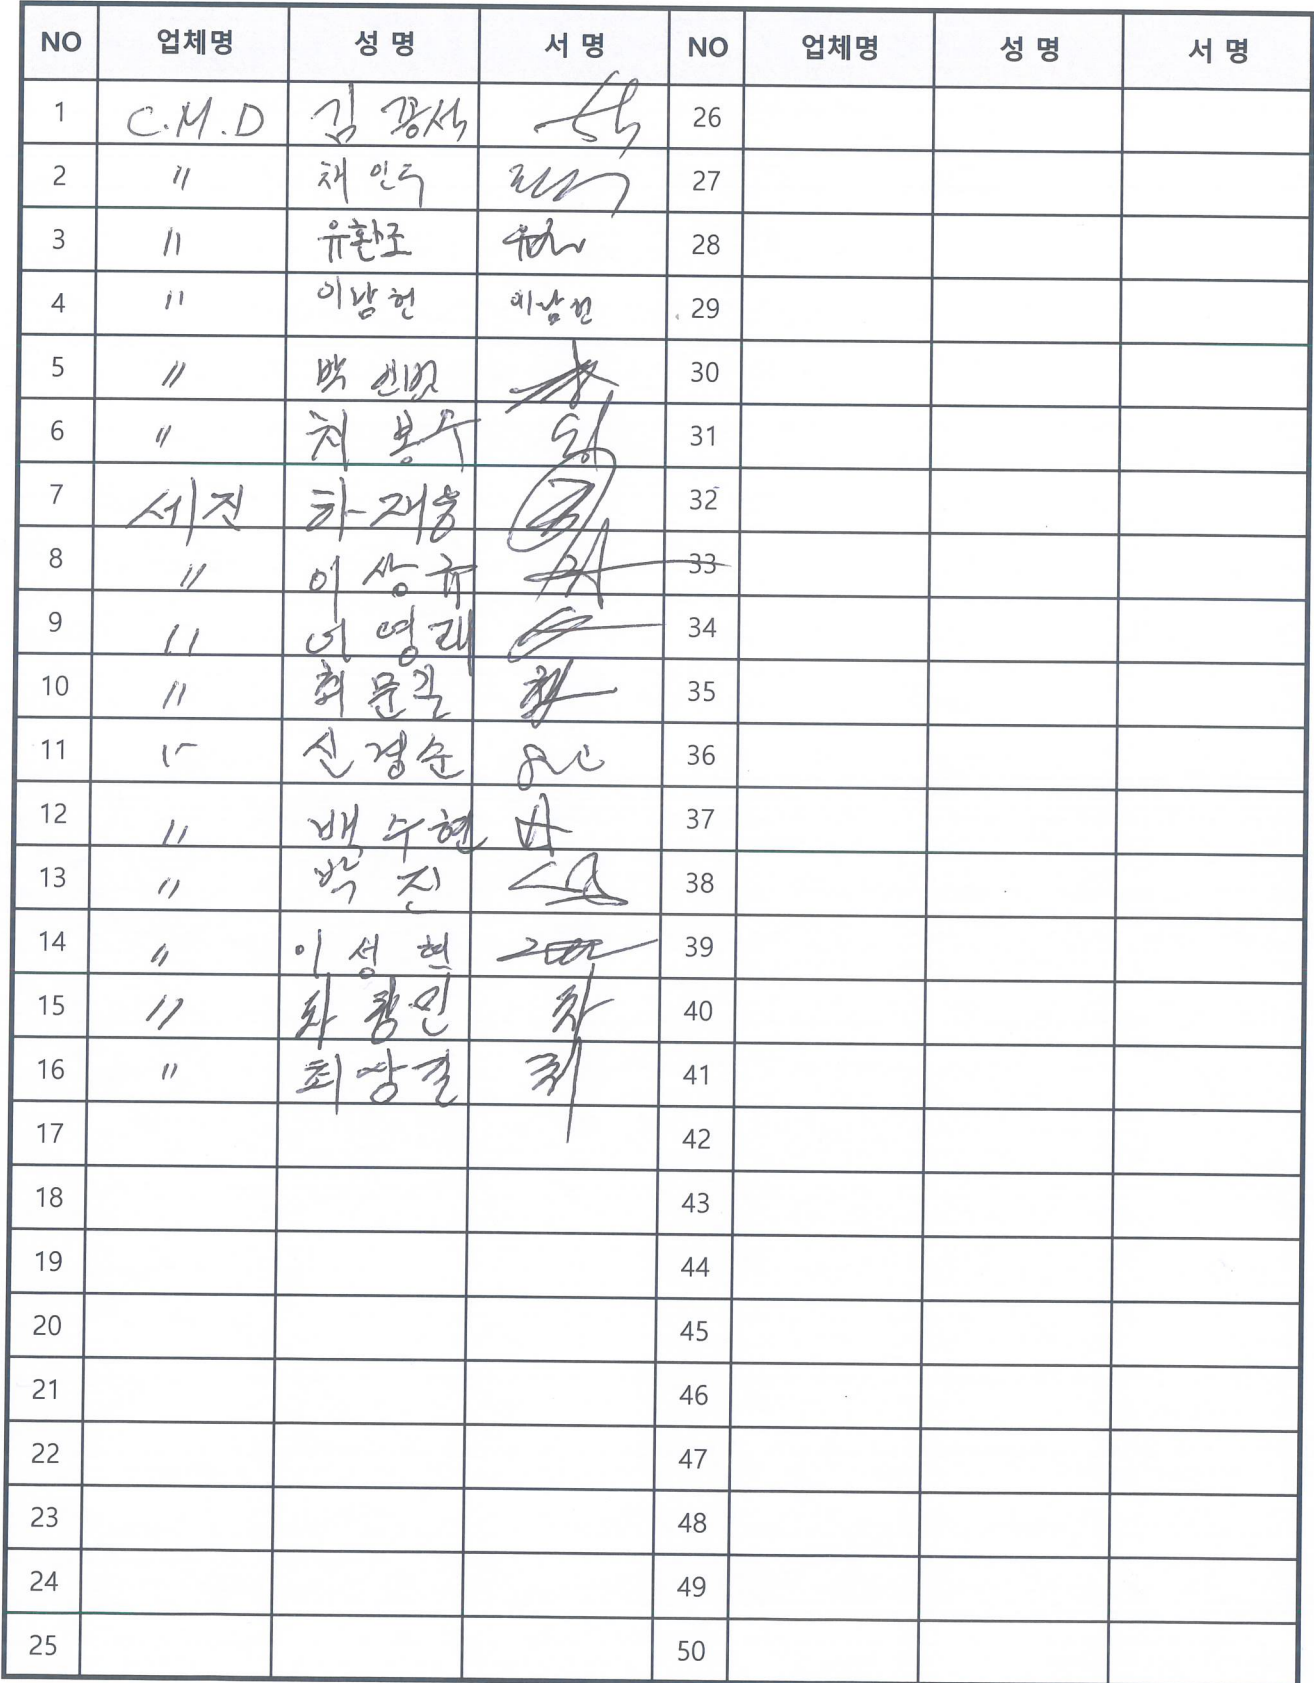 NO 업체명 성 명 서 명 NO 업체명 성 명 서 명
1 C.M.D 김 광석 26
2 〃 채 인두 27
3 〃 유환조 28
4 〃 이남헌 이남헌 29
5 〃 박 인범 30
6 〃 최 봉수 31
7 서진 차재웅 32
8 〃 이 상규 33
9 〃 이 영래 34
10 〃 최 문길 35
11 〃 신경순 36
12 〃 백 수현 37
13 〃 박 진 38
14 〃 이 성 현 39
15 〃 차 광민 차 40
16 〃 최 상길 최 41
17 42
18 43
19 44
20 45
21 46
22 47
23 48
24 49
25 50